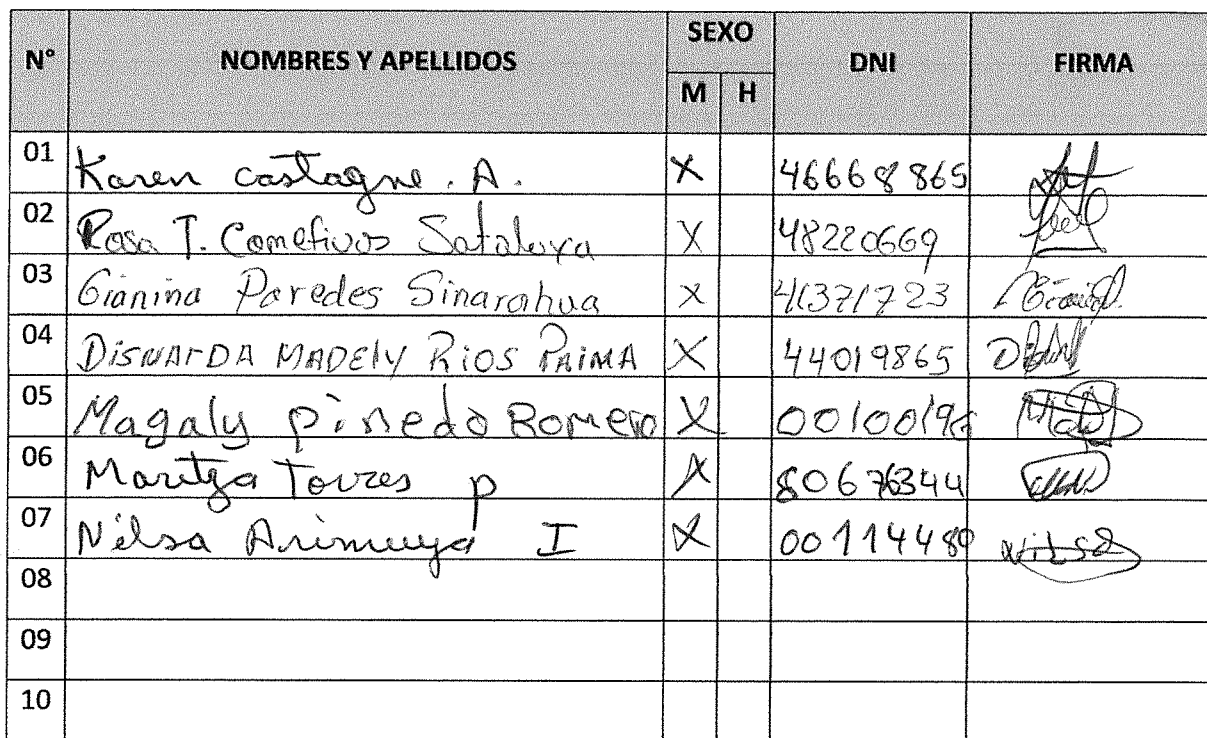 N° NOMBRES Y APELLIDOS SEXO DNI FIRMA
M H
01 Karen castagne. A. X 46668865
02 Rosa T. X 48220669
03 Gianina Paredes Sinarahua X 41371723
04 DISNARDA MADELY RIOS PAIMA X 44019865
05 Magaly pinedo Romero X 00100196
06 Maritza Torres p X 80676344
07 Nilsa Arimuya I X 00114489 Nilsa
08
09
10